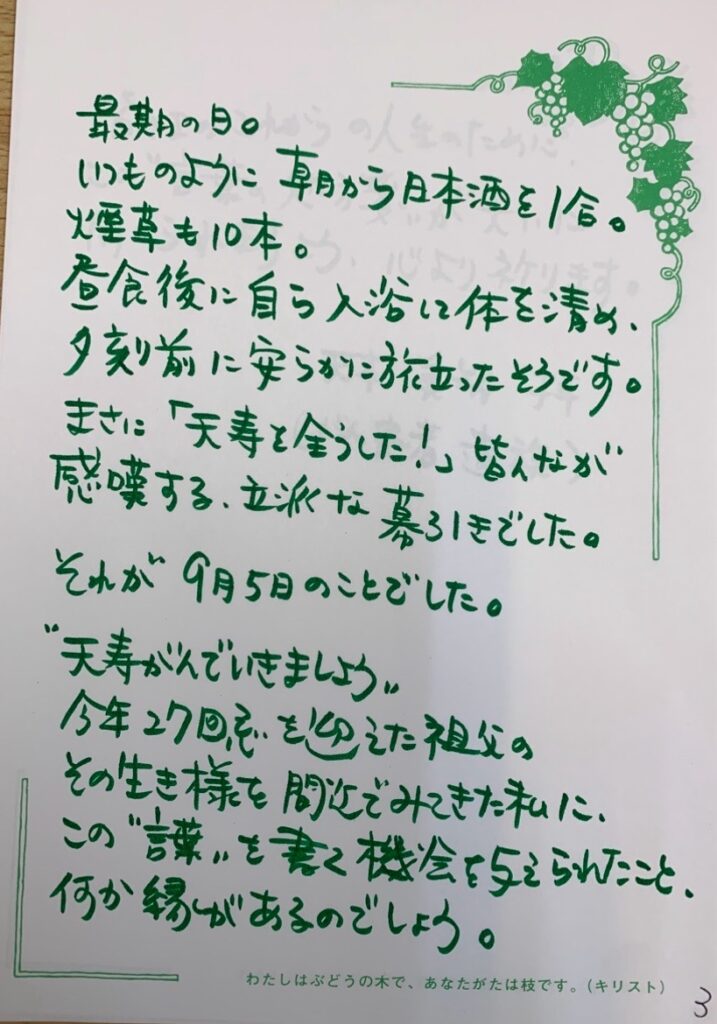 最期の日。
いつものように 朝から日本酒を1合。
煙草も10本。
昼食後に自ら入浴して体を清め、
夕刻前に安らかに旅立ったそうです。
まさに「天寿を全うした！」皆んなが
感嘆する、立派な幕引きでした。
それが 9月5日のことでした。
"天寿がんでいきましょう"
今年27回忌を迎えた祖父の
その生き様を間近でみてきた私に、
この"言葉"を書く機会を与えられたこと、
何か縁があるのでしょう。
わたしはぶどうの木で、あなたがたは枝です。（キリスト）
3